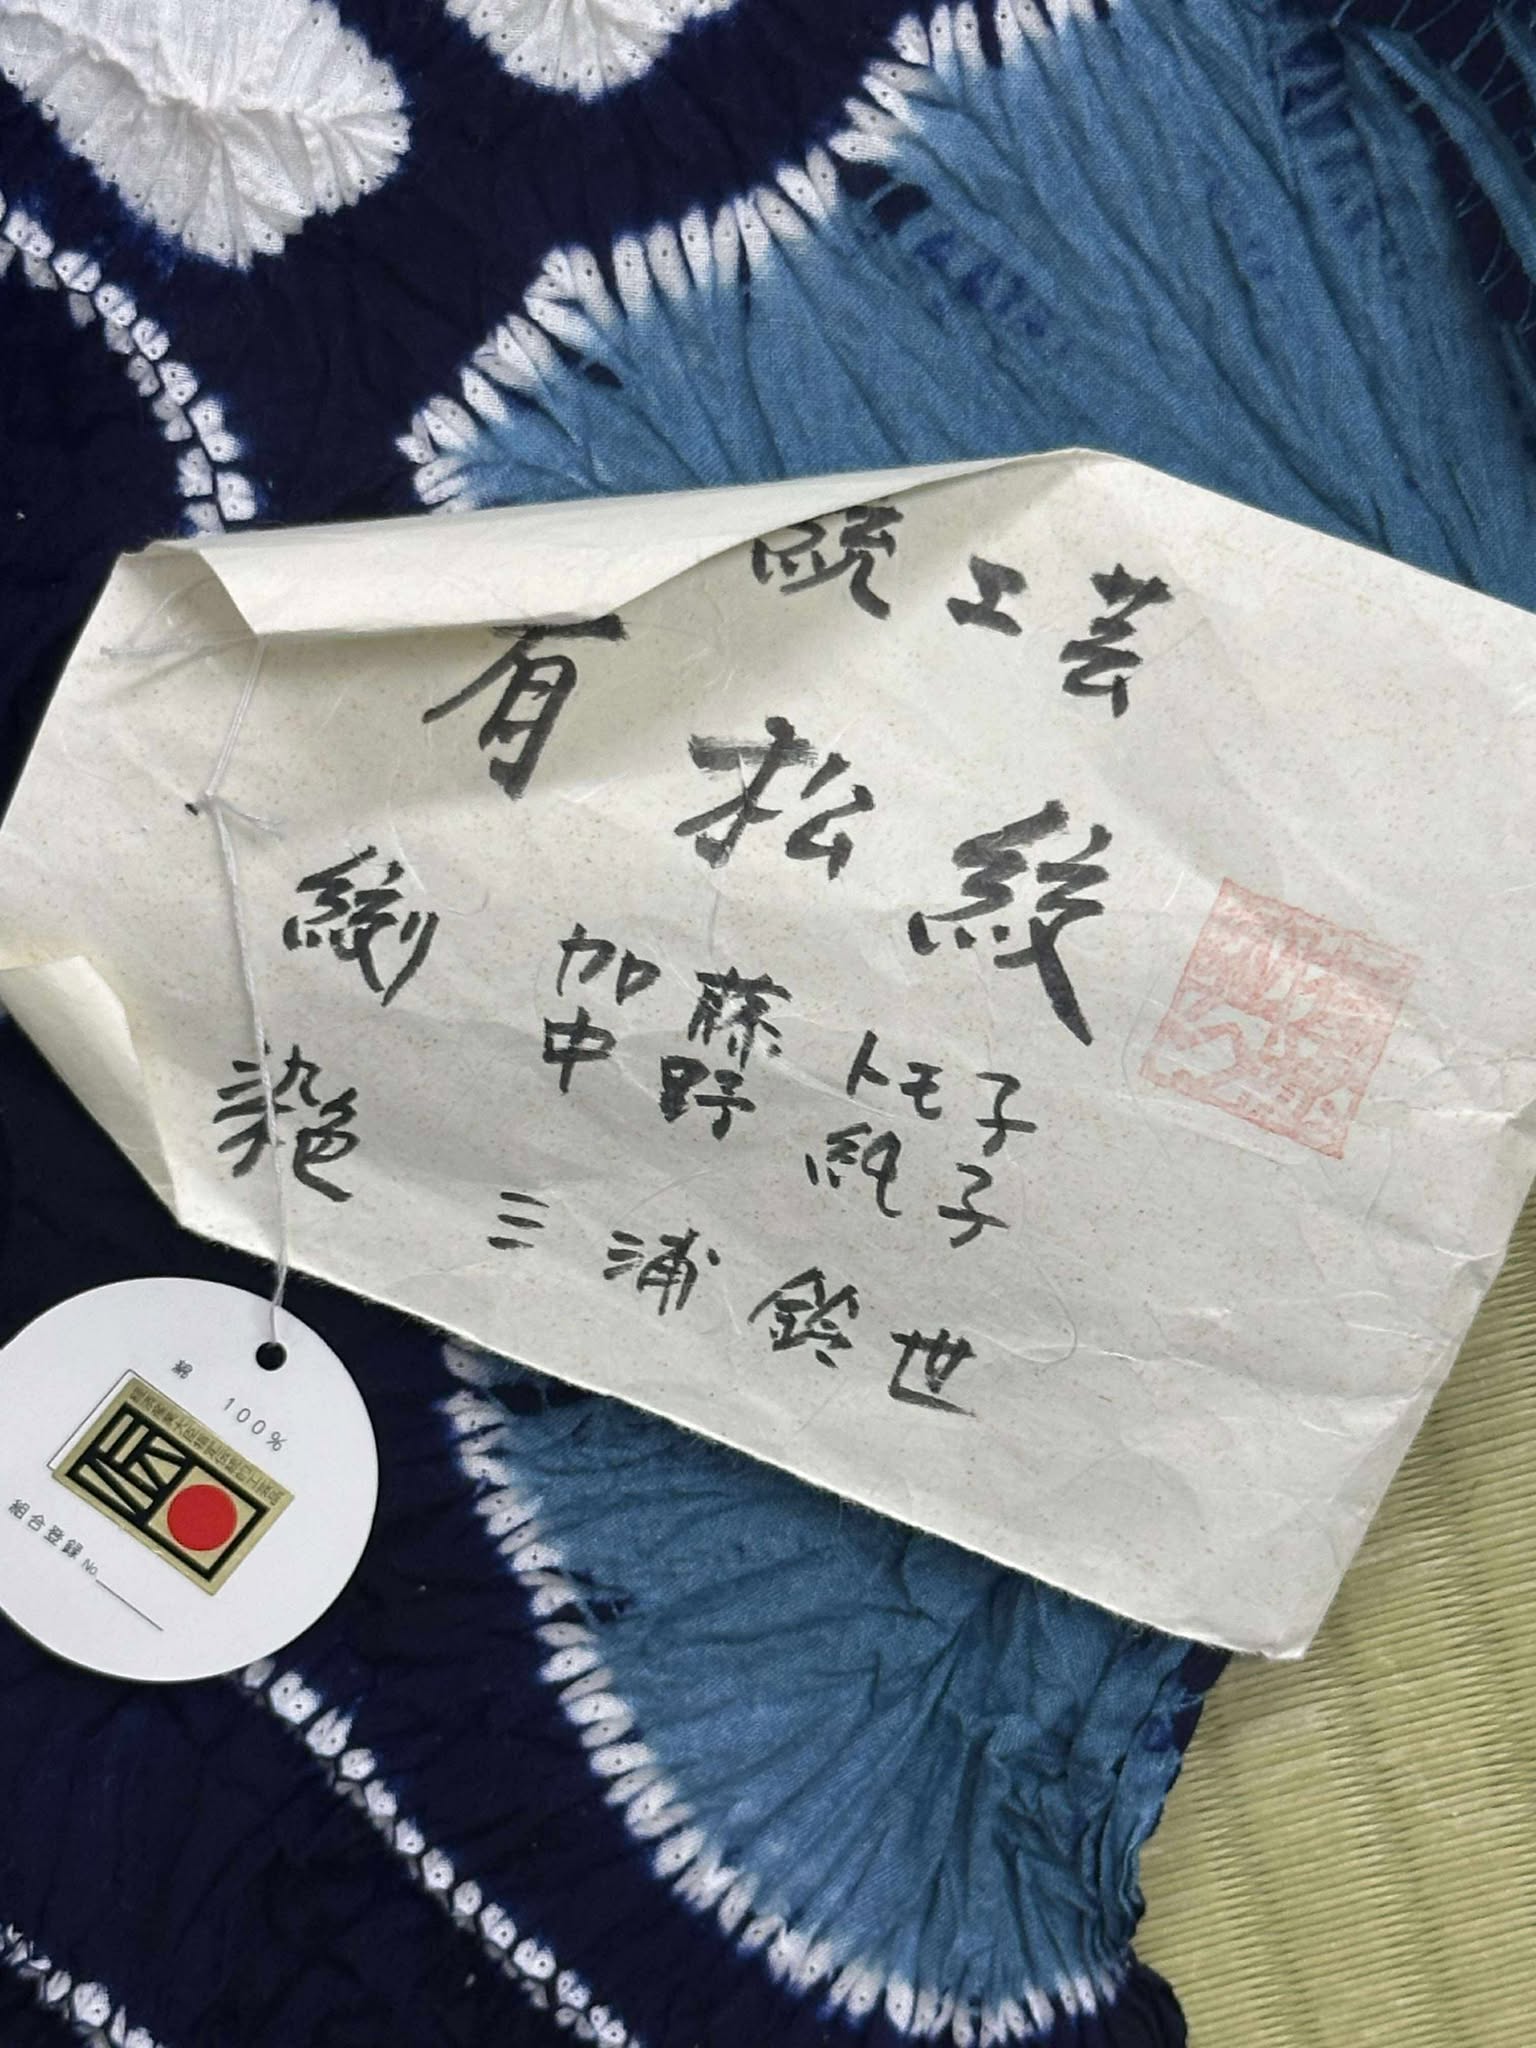 統工芸
有松絞
絞り 加藤トモ子
中野純子
染色 三浦鈴世
綿 100%
組合登録 No.